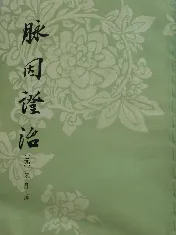 脉因證治